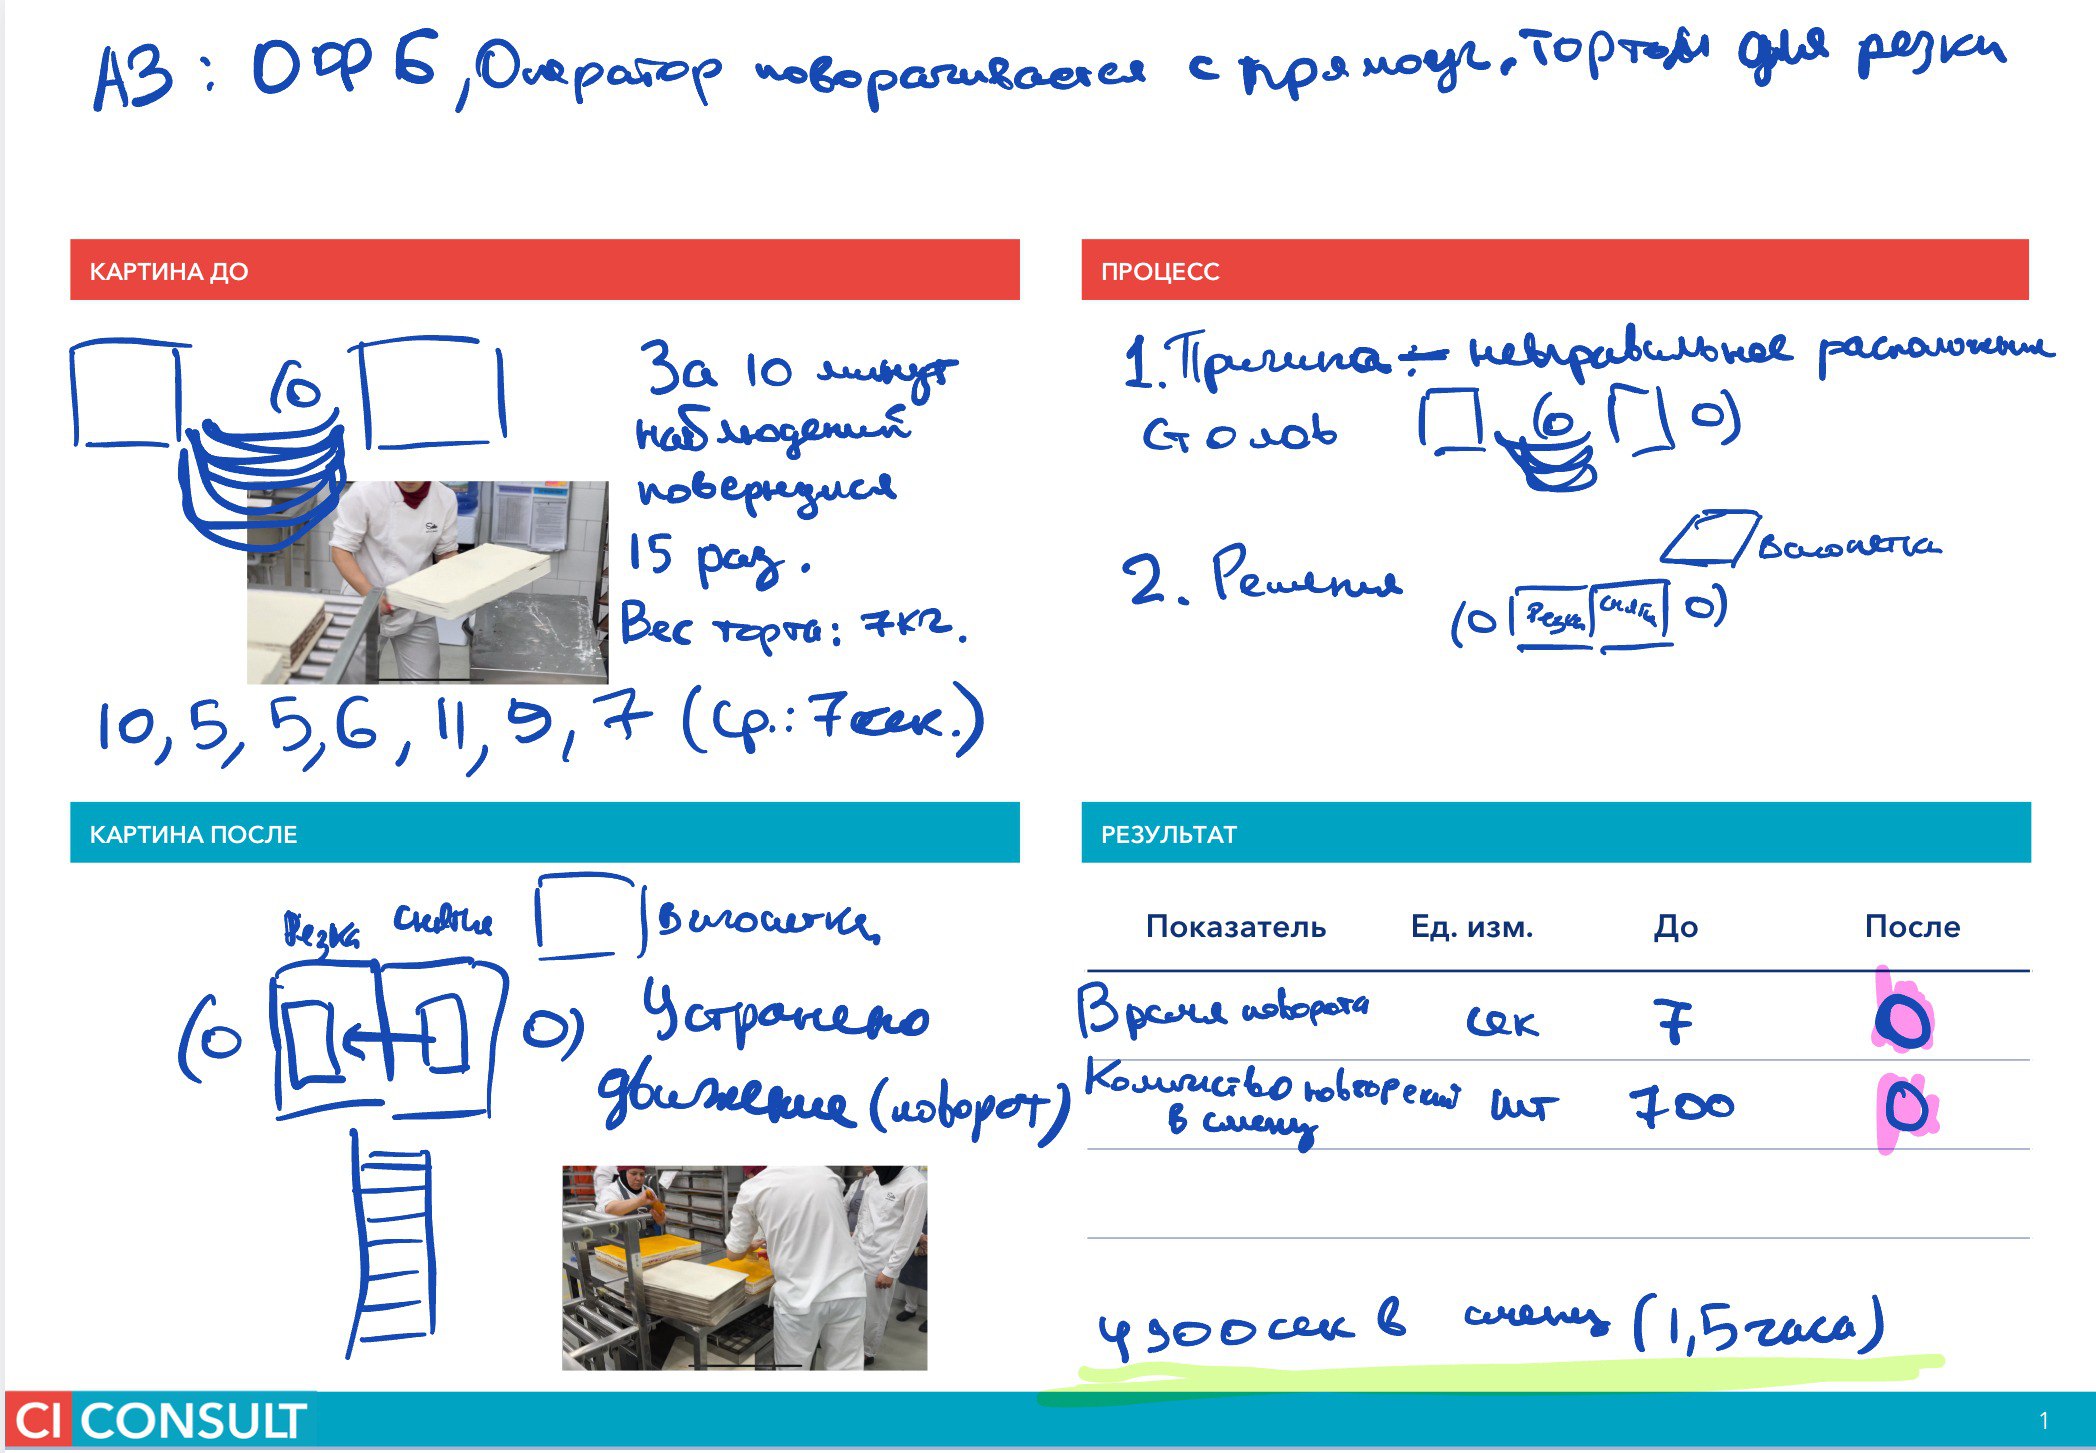 А3: ОФБ, Оператор поворачивается с прямоуг. тортом для резки
КАРТИНА ДО
За 10 минут
наблюдений
повернулся
15 раз.
Вес торта: 7кг.
10, 5, 5, 6, 11, 9, 7 (Ср.: 7 сек.)
ПРОЦЕСС
1. Причина: неправильное расположение
столов
2. Решения
вагонетка
Резка
снятие
КАРТИНА ПОСЛЕ
Резка
снятие
вагонетка
Устранено
движение (поворот)
РЕЗУЛЬТАТ
Показатель Ед. изм. До После
Время поворота сек 7 0
Количество повторений
в смену шт 700 0
4900 сек в смену (1,5 часа)
CI CONSULT
1